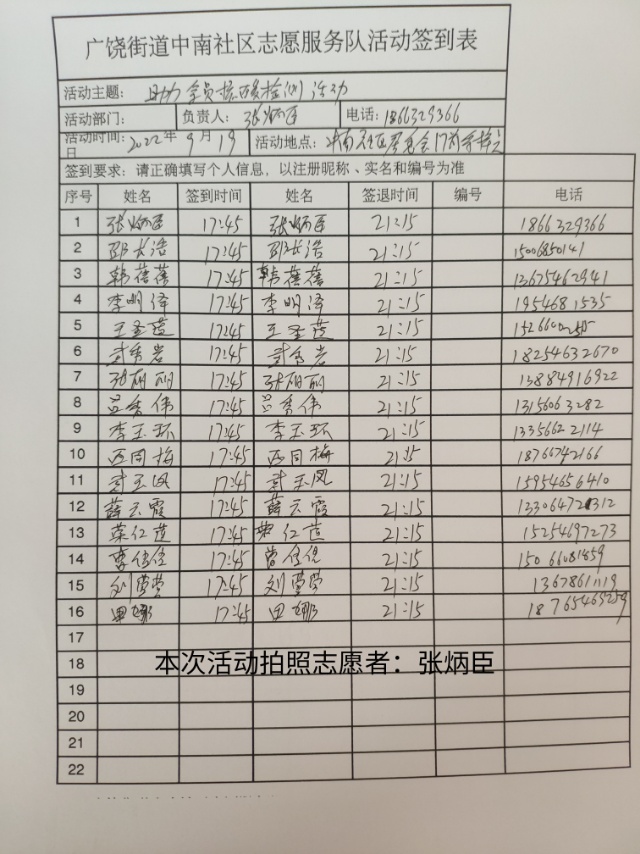 广饶街道中南社区志愿服务队活动签到表
活动主题: 助力全员核酸检测活动
活动部门: 负责人: 张炳臣 电话: 1866329366
活动时间: 2022年9月19日 活动地点: 中南社区居委会17
签到要求: 请正确填写个人信息,以注册昵称、实名和编号为准
序号 姓名 签到时间 姓名 签退时间 编号 电话
1 张炳臣 17:45 张炳臣 21:15 1866329366
2 邵长浩 17:45 邵长浩 21:15 15006850141
3 韩蓓蓓 17:45 韩蓓蓓 21:15 13675462941
4 李明泽 17:45 李明泽 21:15 1954681535
5 王圣莲 17:45 王圣莲 21:15
6 武秀岩 17:45 武秀岩 21:15 18254632670
7 张丽丽 17:45 张丽丽 21:15 13884916922
8 吕秀伟 17:45 吕秀伟 21:15 13156063282
9 李玉环 17:45 李玉环 21:15 13356622114
10 西同梅 17:45 西同梅 21:15 18766742166
11 武玉凤 17:45 武玉凤 21:15 15954656410
12 薛云霞 17:45 薛云霞 21:15 13306472312
13 荣仁莲 17:45 荣仁莲 21:15 15254697273
14 17:45 21:15 15066081859
15 刘莹莹 17:45 刘莹莹 21:15 13678611119
16 田娜 17:45 田娜 21:15 18765469259
17
本次活动拍照志愿者: 张炳臣
18
19
20
21
22